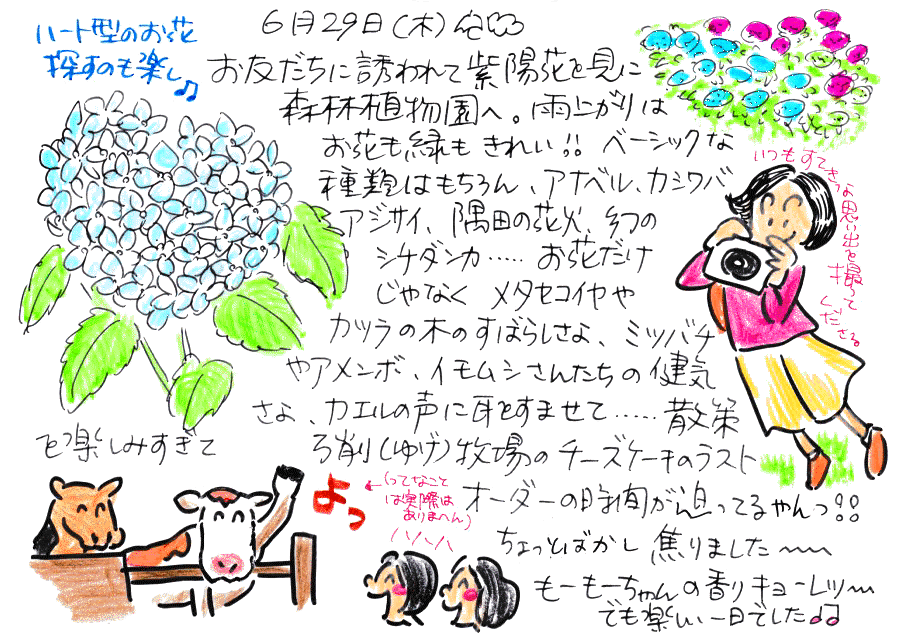 6月29日(木)
ハート型のお花
探すのも楽し♪
お友だちに誘われて紫陽花を見に
森林植物園へ。雨上がりは
お花も緑もきれい!! ベーシックな
種類はもちろん、アナベル、カシワバ
アジサイ、隅田の花火、幻の
シチダンカ……お花だけ
じゃなく メタセコイヤや
カツラの木のすばらしさよ、ミツバチ
やアメンボ、イモムシさんたちの健気
さよ、カエルの声に耳をすませて……散策
を楽しみすぎて
弓削(ゆげ)牧場のチーズケーキのラスト
オーダーの時間が迫ってるやんっ!!
ちょっとばかし 焦りました〜〜
もーもーちゃんの香りキョーレツ〜
でも楽しい一日でした♪♪
いつもすてきな思い出を撮って
くださる
よっ
←(ってなこと
は実際は
ありまへん)
ハハハ